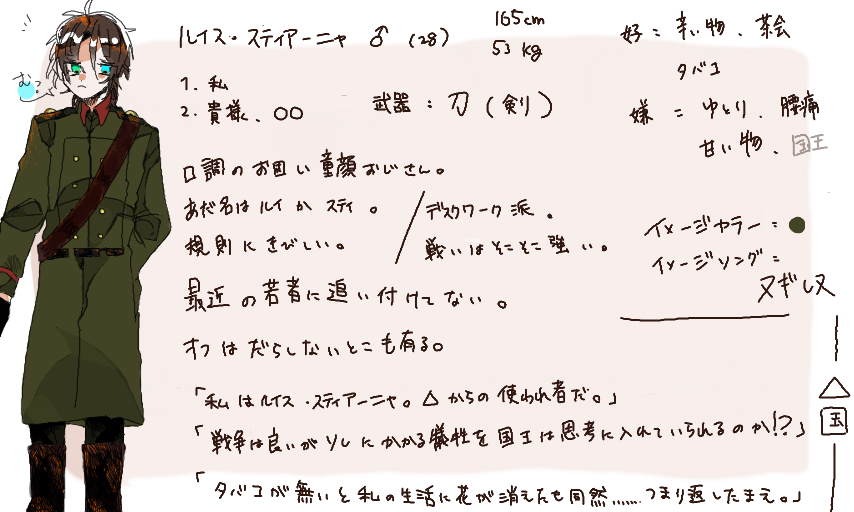 む?
ルイス・スティアーニャ ♂ (28)
165cm
53kg
好:辛い物、茶会
タバコ
1. 私
2. 貴様、○○
武器:刀(剣)
嫌=ゆとり、腰痛
甘い物、国王
口調のお固い童顔おじさん。
あだ名はルイかスティ。
規則にきびしい。
デスクワーク派。
戦いはそこそこ強い。
イメージカラー:
イメージソング:
ヌギレヌ
最近の若者に追い付けてない。
オフはだらしないとこも有る。
△
国
「私はルイス・スティアーニャ。△からの使われ者だ。」
「戦争は良いがソレにかかる犠牲を国王は思考に入れていられるのか!?」
「タバコが無いと私の生活に花が消えたも同然……つまり返したまえ。」